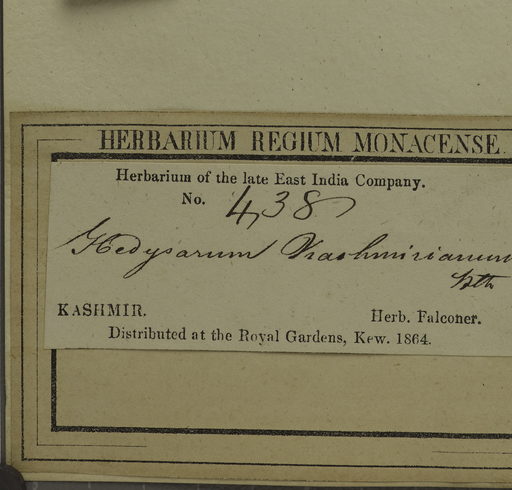 HERBARIUM REGIUM MONACENSE.
Herbarium of the late East India Company.
No. 438
Hedysarum Kashmirianum
KASHMIR. Herb. Falconer.
Distributed at the Royal Gardens, Kew. 1864.